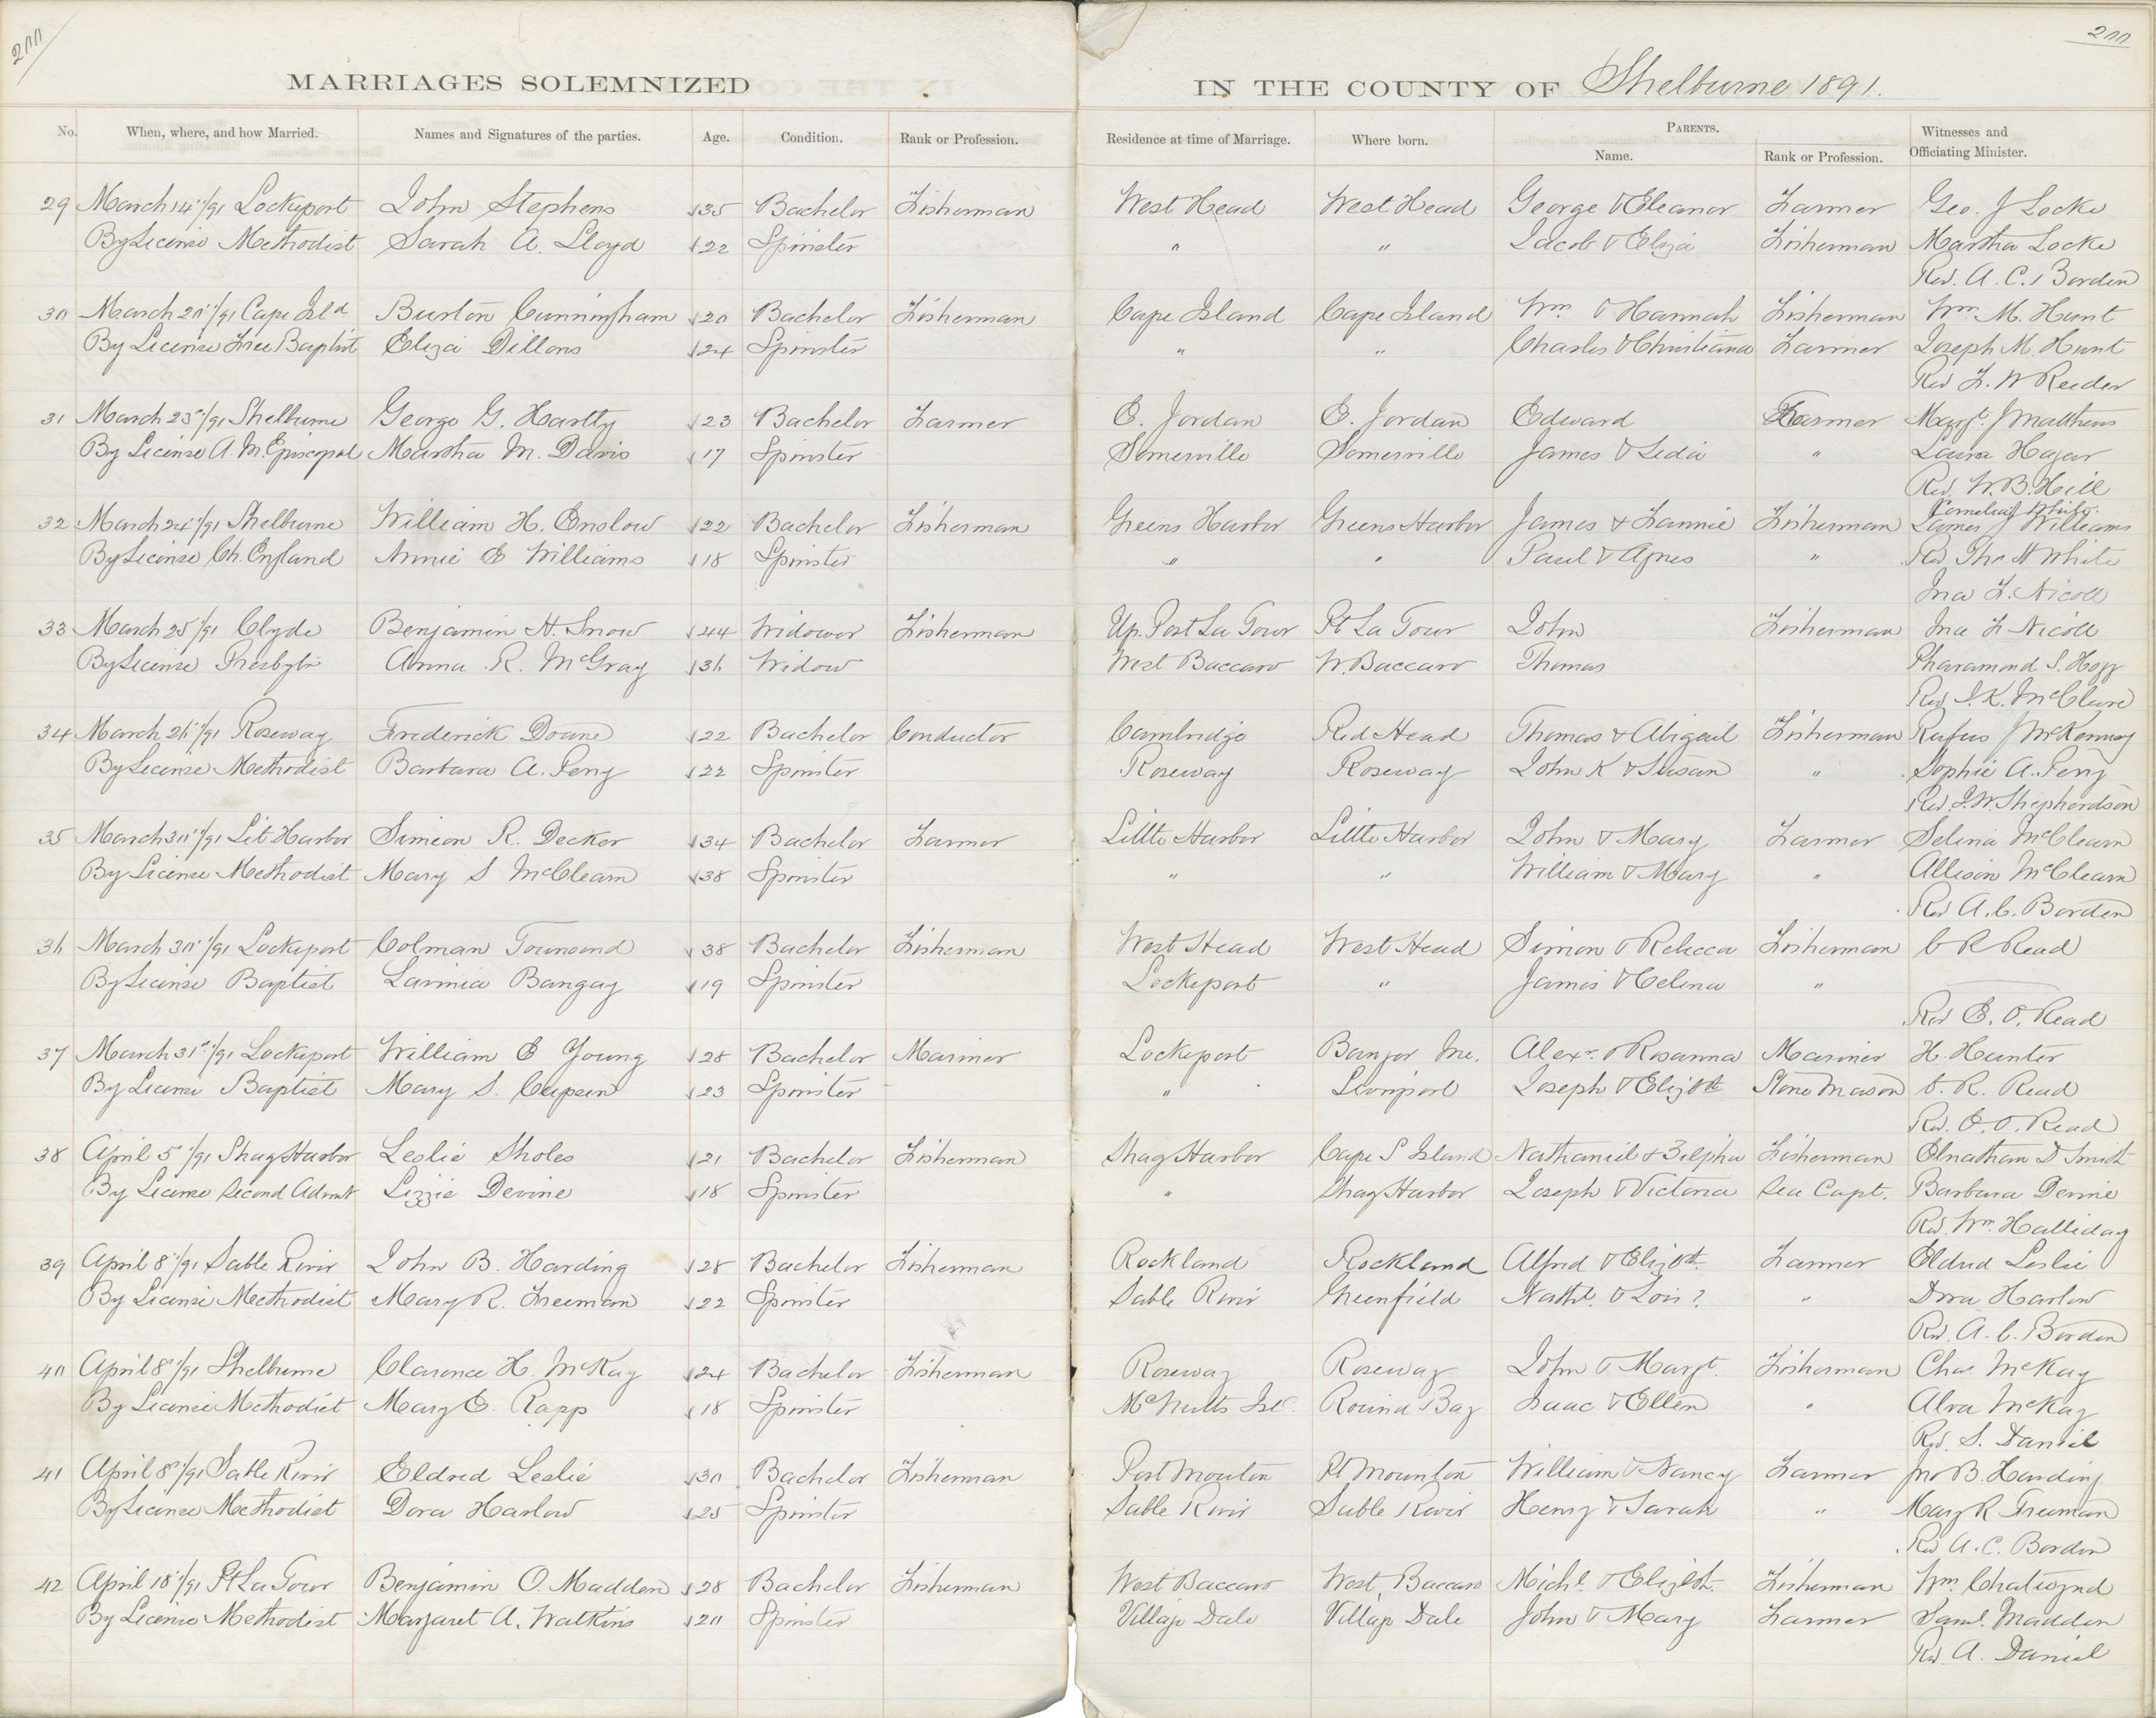 200
200
MARRIAGES SOLEMNIZED IN THE COUNTY OF Shelburne 1891.
No. When, where, and how Married. Names and Signatures of the parties. Age. Condition. Rank or Profession. Residence at time of Marriage. Where born. PARENTS. Name. Rank or Profession. Witnesses and Officiating Minister.
29 March 14"/91 Lockeport John Stephens 35 Bachelor Fisherman West Head West Head George & Eleanor Farmer Geo. J Locke
By License Methodist Sarah A. Lloyd 22 Spinster " " Jacob & Eliza Fisherman Martha Locke
Rev. A. C. Borden
30 March 20"/91 Cape Isld Burton Cunningham 20 Bachelor Fisherman Cape Island Cape Island Wm & Hannah Fisherman Wm M. Hunt
By License Free Baptist Eliza Dillons 24 Spinster " " Charles & Christiana Farmer Joseph M. Hunt
Rev F. W Reeder
31 March 23"/91 Shelburne George G. Hartly 23 Bachelor Farmer E. Jordan E. Jordan Edward Farmer Magt. J Matthews
By License A. M. Episcopal Martha M. Davis 17 Spinster Somerville Somerville James & Lidia " Laura Hagar
Rev. W. B. Hill
Cornelia J White
32 March 24"/91 Shelburne William H. Enslow 22 Bachelor Fisherman Greens Harbor Greens Harbor James & Fannie Fisherman James J Williams
By License Ch. England Annie E Williams 18 Spinster " " Paul & Agnes " Rev Tho. H White
Jna F. Nicoll
33 March 25"/91 Clyde Benjamin H. Snow 44 Widower Fisherman Up. Port La Tour Pt La Tour John Fisherman Jna F Nicoll
By License Presbytn Anna R. McGray 36 Widow West Baccaro W. Baccaro Thomas Pharamond S. Hogg
Rev. S. K. McClure
34 March 26"/91 Roseway Frederick Doane 22 Bachelor Conductor Cambridge Red Head Thomas & Abigail Fisherman Rufus J McKenney
By License Methodist Barbara A. Perry 22 Spinster Roseway Roseway John K & Susan " Sophie A. Perry
Rev. J. W Shephardson
35 March 30"/91 Lit Harbor Simeon R. Decker 34 Bachelor Farmer Little Harbor Little Harbor John & Mary Farmer Selina McClearn
By License Methodist Mary S McClearn 38 Spinster " " William & Mary " Allison McClearn
Rev A. C. Borden
36 March 30"/91 Lockeport Colman Townsend 38 Bachelor Fisherman West Head West Head Simon & Rebecca Fisherman C R Read
By License Baptist Lavinia Bangay 19 Spinster Lockeport " James & Celina "
Rev E. O. Read
37 March 31"/91 Lockeport William E Young 28 Bachelor Mariner Lockeport Bangor Me. Alexr. & Rosanna Mariner H. Hunter
By License Baptist Mary S. 23 Spinster " Liverpool Joseph & Elizbth Stone Mason C. R. Read
Rev. E. O. Read
38 April 5"/91 Shag Harbor Leslie Sholes 21 Bachelor Fisherman Shag Harbor Cape S Island Nathaniel & Zilpha Fisherman Elnathan D Smith
By License Second Advent Lizzie Devine 18 Spinster " Shag Harbor Joseph & Victoria Sea Capt. Barbara Devine
Rev. Wm. Halliday
39 April 8"/91 Sable River John B. Harding 28 Bachelor Fisherman Rockland Rockland Alfred & Elizbth Farmer Eldred Leslie
By License Methodist Mary R. Freeman 22 Spinster Sable River Greenfield Nathl. & Lois ? " Dora Harlow
Rev. A. C. Borden
40 April 8"/91 Shelburne Clarence H. McKay 24 Bachelor Fisherman Roseway Roseway John & Margt. Fisherman Chas McKay
By License Methodist Mary E. Rapp 18 Spinster McNutts Isl. Round Bay Isaac & Ellen " Alva McKay
Rev. S. Daniel
41 April 8"/91 Sable River Eldred Leslie 30 Bachelor Fisherman Port Mouton Pt Mounton William & Nancy Farmer Jno B. Harding
By License Methodist Dora Harlow 25 Spinster Sable River Sable River Henry & Sarah " Mary R Freeman
Rev A. C. Borden
42 April 18"/91 Pt La Tour Benjamin O. Madden 28 Bachelor Fisherman West Baccaro West Baccaro Michl. & Elizbth. Fisherman Wm. Chatwynd
By License Methodist Margaret A. Watkins 20 Spinster Village Dale Village Dale John & Mary Farmer Saml. Madden
Rev. A. Daniel